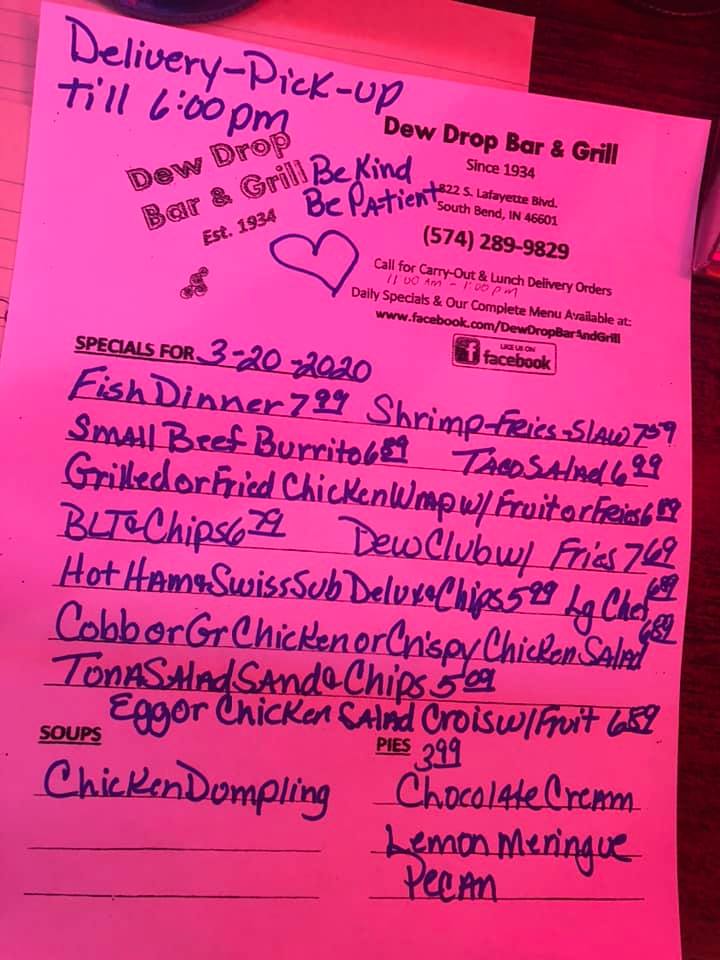 Delivery-Pick-up
till 6:00pm
Dew Drop
Bar & Grill
Est. 1934
Be Kind
Be Patient
Dew Drop Bar & Grill
Since 1934
822 S. Lafayette Blvd.
South Bend, IN 46601
(574) 289-9829
Call for Carry-Out & Lunch Delivery Orders
11:00 AM - 1:00 pm
Daily Specials & Our Complete Menu Available at:
www.facebook.com/DewDropBarAndGrill
LIKE US ON
facebook
SPECIALS FOR 3-20-2020
Fish Dinner 7 99 Shrimp-Fries-Slaw 7 59
Small Beef Burrito 6 89 Taco Salad 6 99
Grilled or Fried Chicken Wrap w/ Fruit or Fries 6 89
BLT & Chips 6 79 Dew Club w/ Fries 7 69
Hot Ham & Swiss Sub Deluxe & Chips 5 99 Lg Chef 6 89
Cobb or Gr Chicken or Crispy Chicken Salad 6 89
Tuna Salad Sand & Chips 5 09
Egg or Chicken Salad Crois w/ Fruit 6 59
SOUPS
Chicken Dumpling
PIES 3 99
Chocolate Cream
Lemon Meringue
Pecan